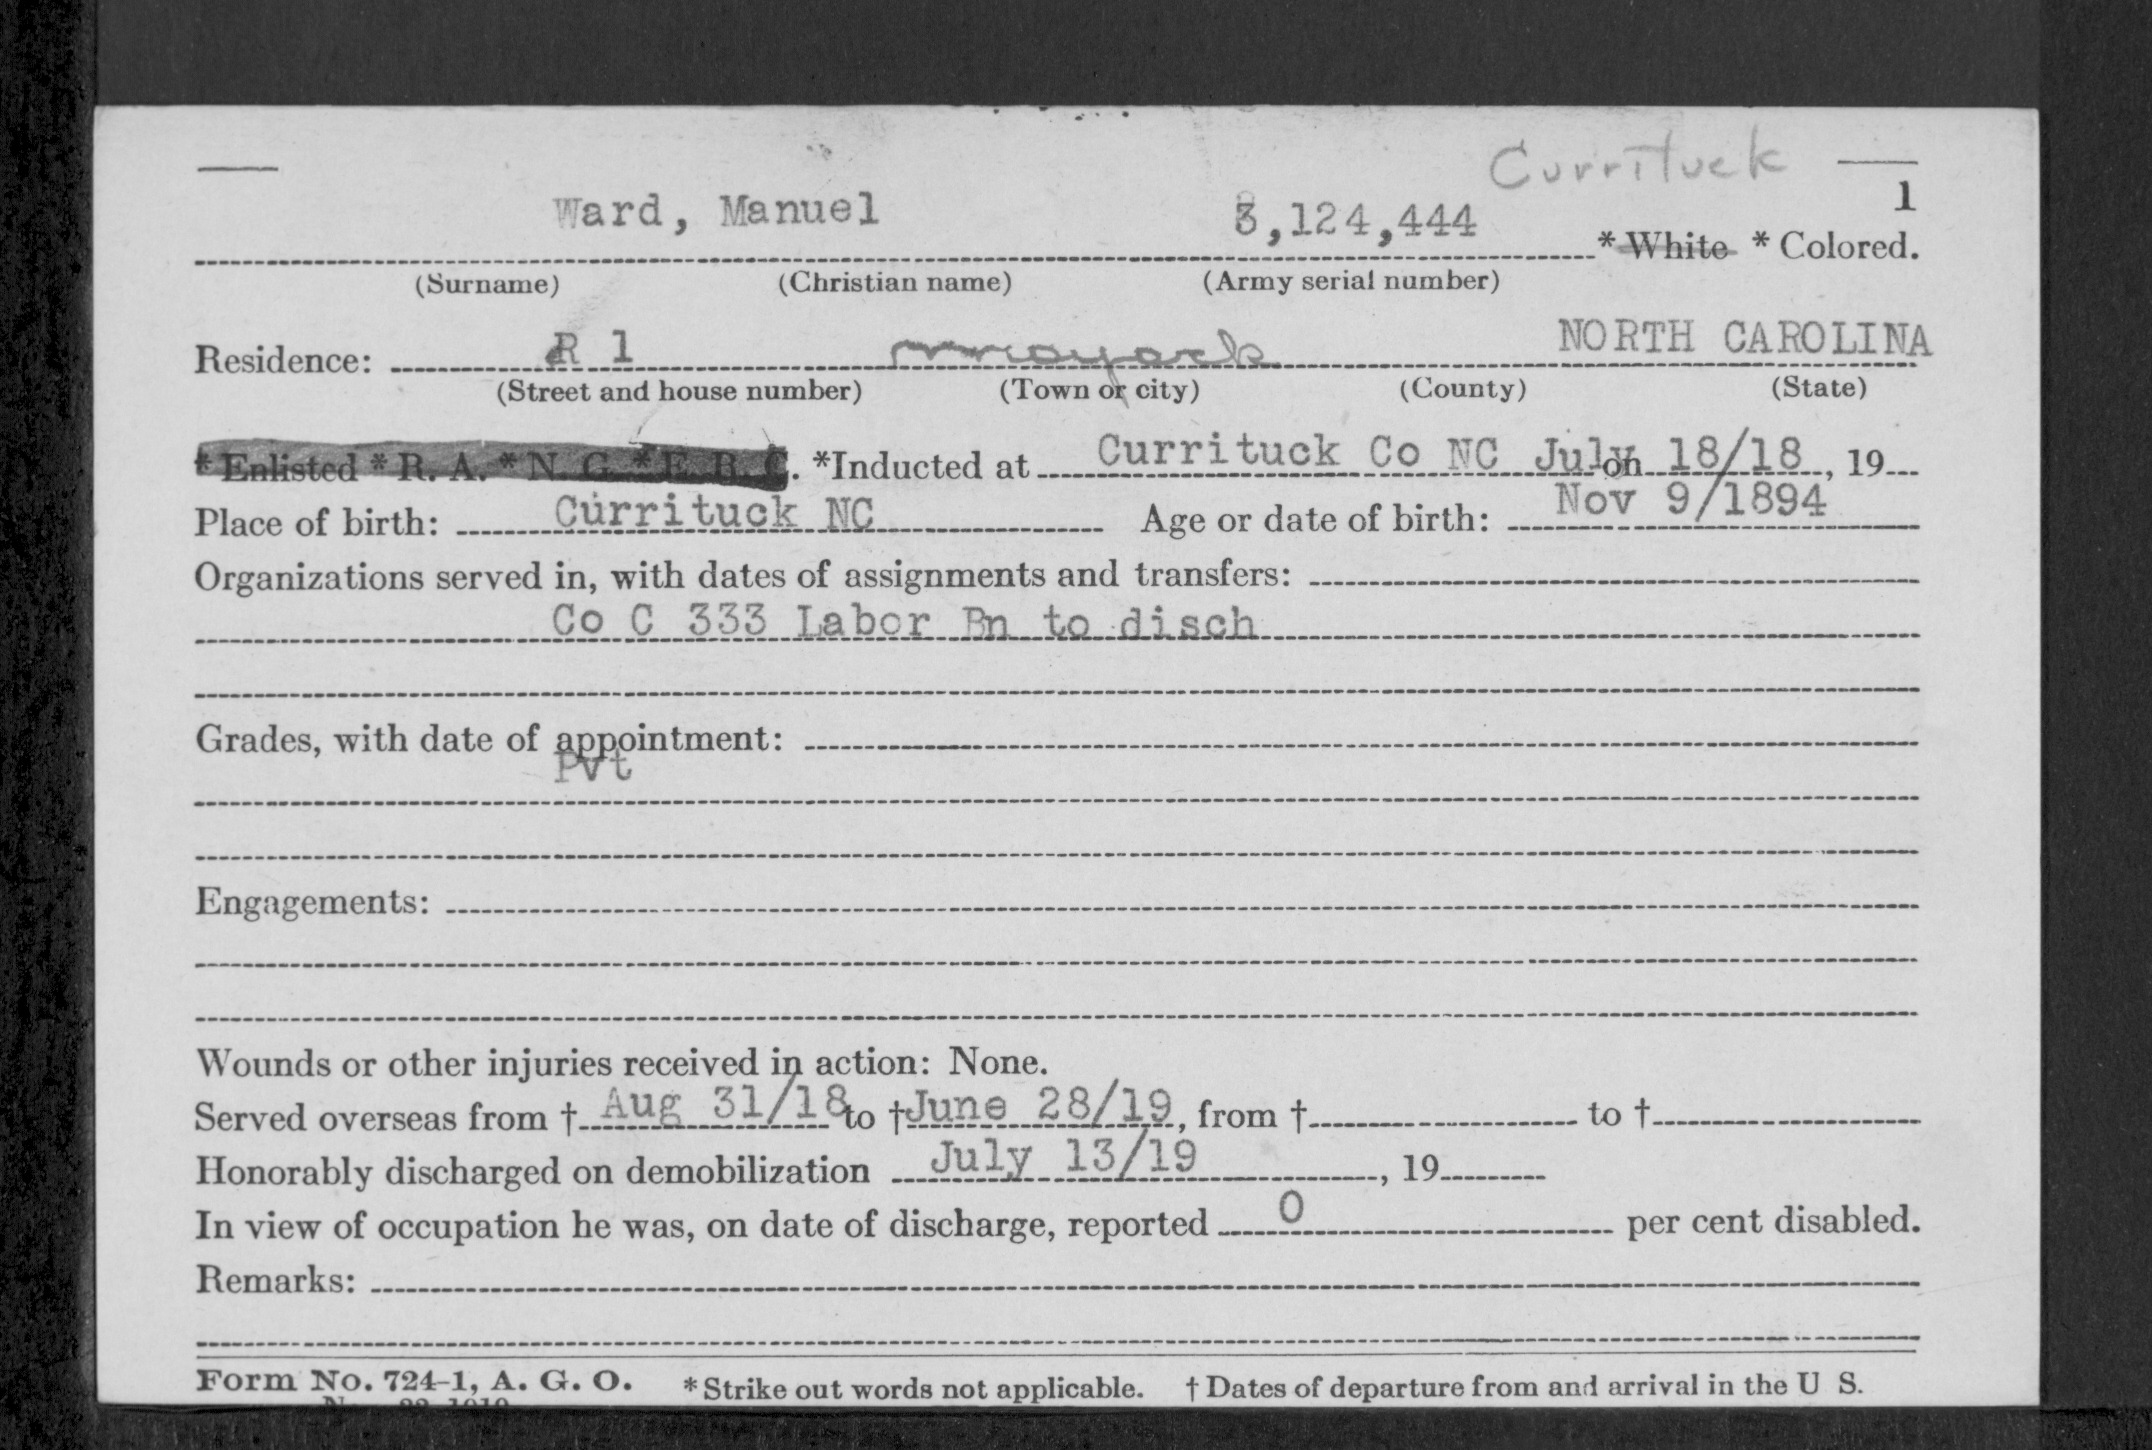 Currituck
1
Ward, Manuel 3,124,444 * White * Colored.
(Surname) (Christian name) (Army serial number)
Residence: R 1 Moyock NORTH CAROLINA
(Street and house number) (Town or city) (County) (State)
* Enlisted * R. A. * N. G. * E. R. C. *Inducted at Currituck Co NC July on 18/18, 19
Place of birth: Currituck NC Age or date of birth: Nov 9/1894
Organizations served in, with dates of assignments and transfers:
Co C 333 Labor Bn to disch
Grades, with date of appointment:
Pvt
Engagements:
Wounds or other injuries received in action: None.
Served overseas from † Aug 31/18 to † June 28/19, from † to †
Honorably discharged on demobilization July 13/19, 19
In view of occupation he was, on date of discharge, reported 0 per cent disabled.
Remarks:
Form No. 724-1, A. G. O. * Strike out words not applicable. † Dates of departure from and arrival in the U S.